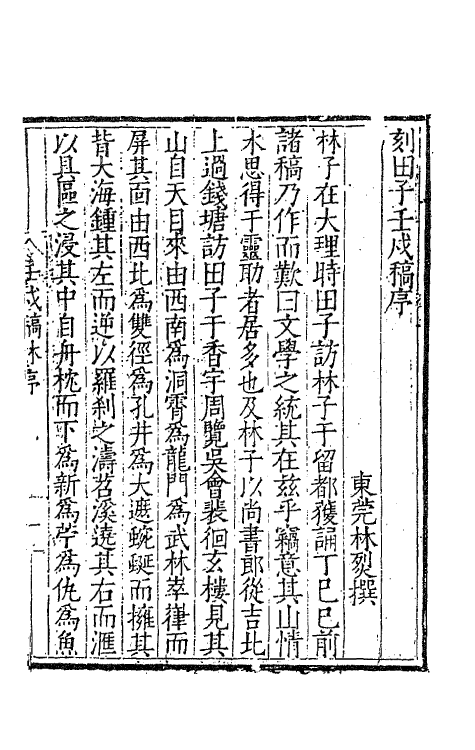 刻田子壬戌稿序
東莞林烈撰
林子在大理時田子訪林子于留都獲誦丁巳已前
諸稿乃作而歎曰文學之統其在兹乎竊意其山情
水思得于靈助者居多也及林子以尚書郎從吉北
上過錢塘訪田子于香宇周覽吳會裴徊玄樓見其
山自天目來由西南為洞霄為龍門為武林崒嵂而
屏其面由西北為雙徑為孔井為大遮蜿蜒而擁其
背大海鍾其左而逆以羅刹之濤苕溪遶其右而滙
以具區之浸其中自舟枕而下為新為芹為仇為魚
壬戌稿林序